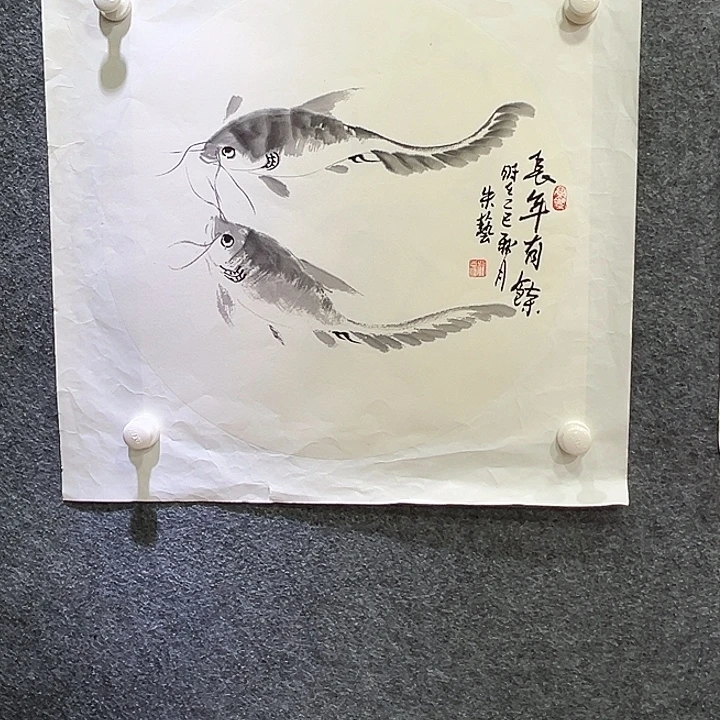 長年有餘
時在乙巳秋月
朱藝